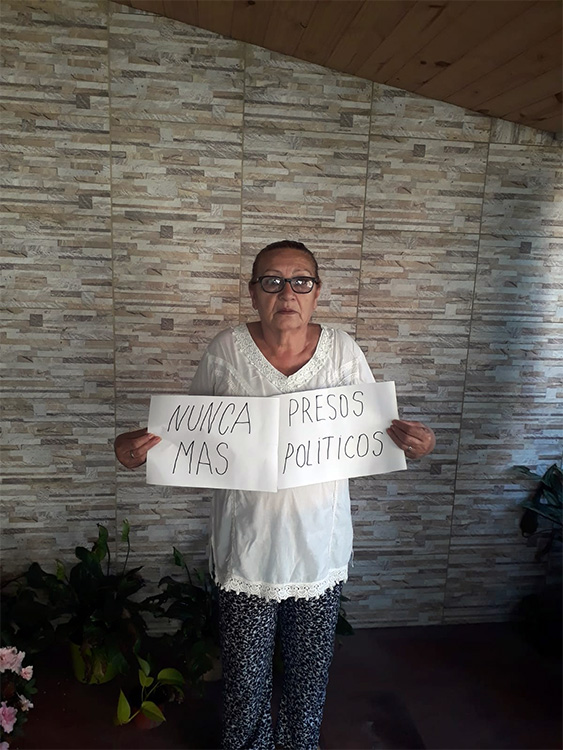 NUNCA
MAS
PRESOS
POLITICOS